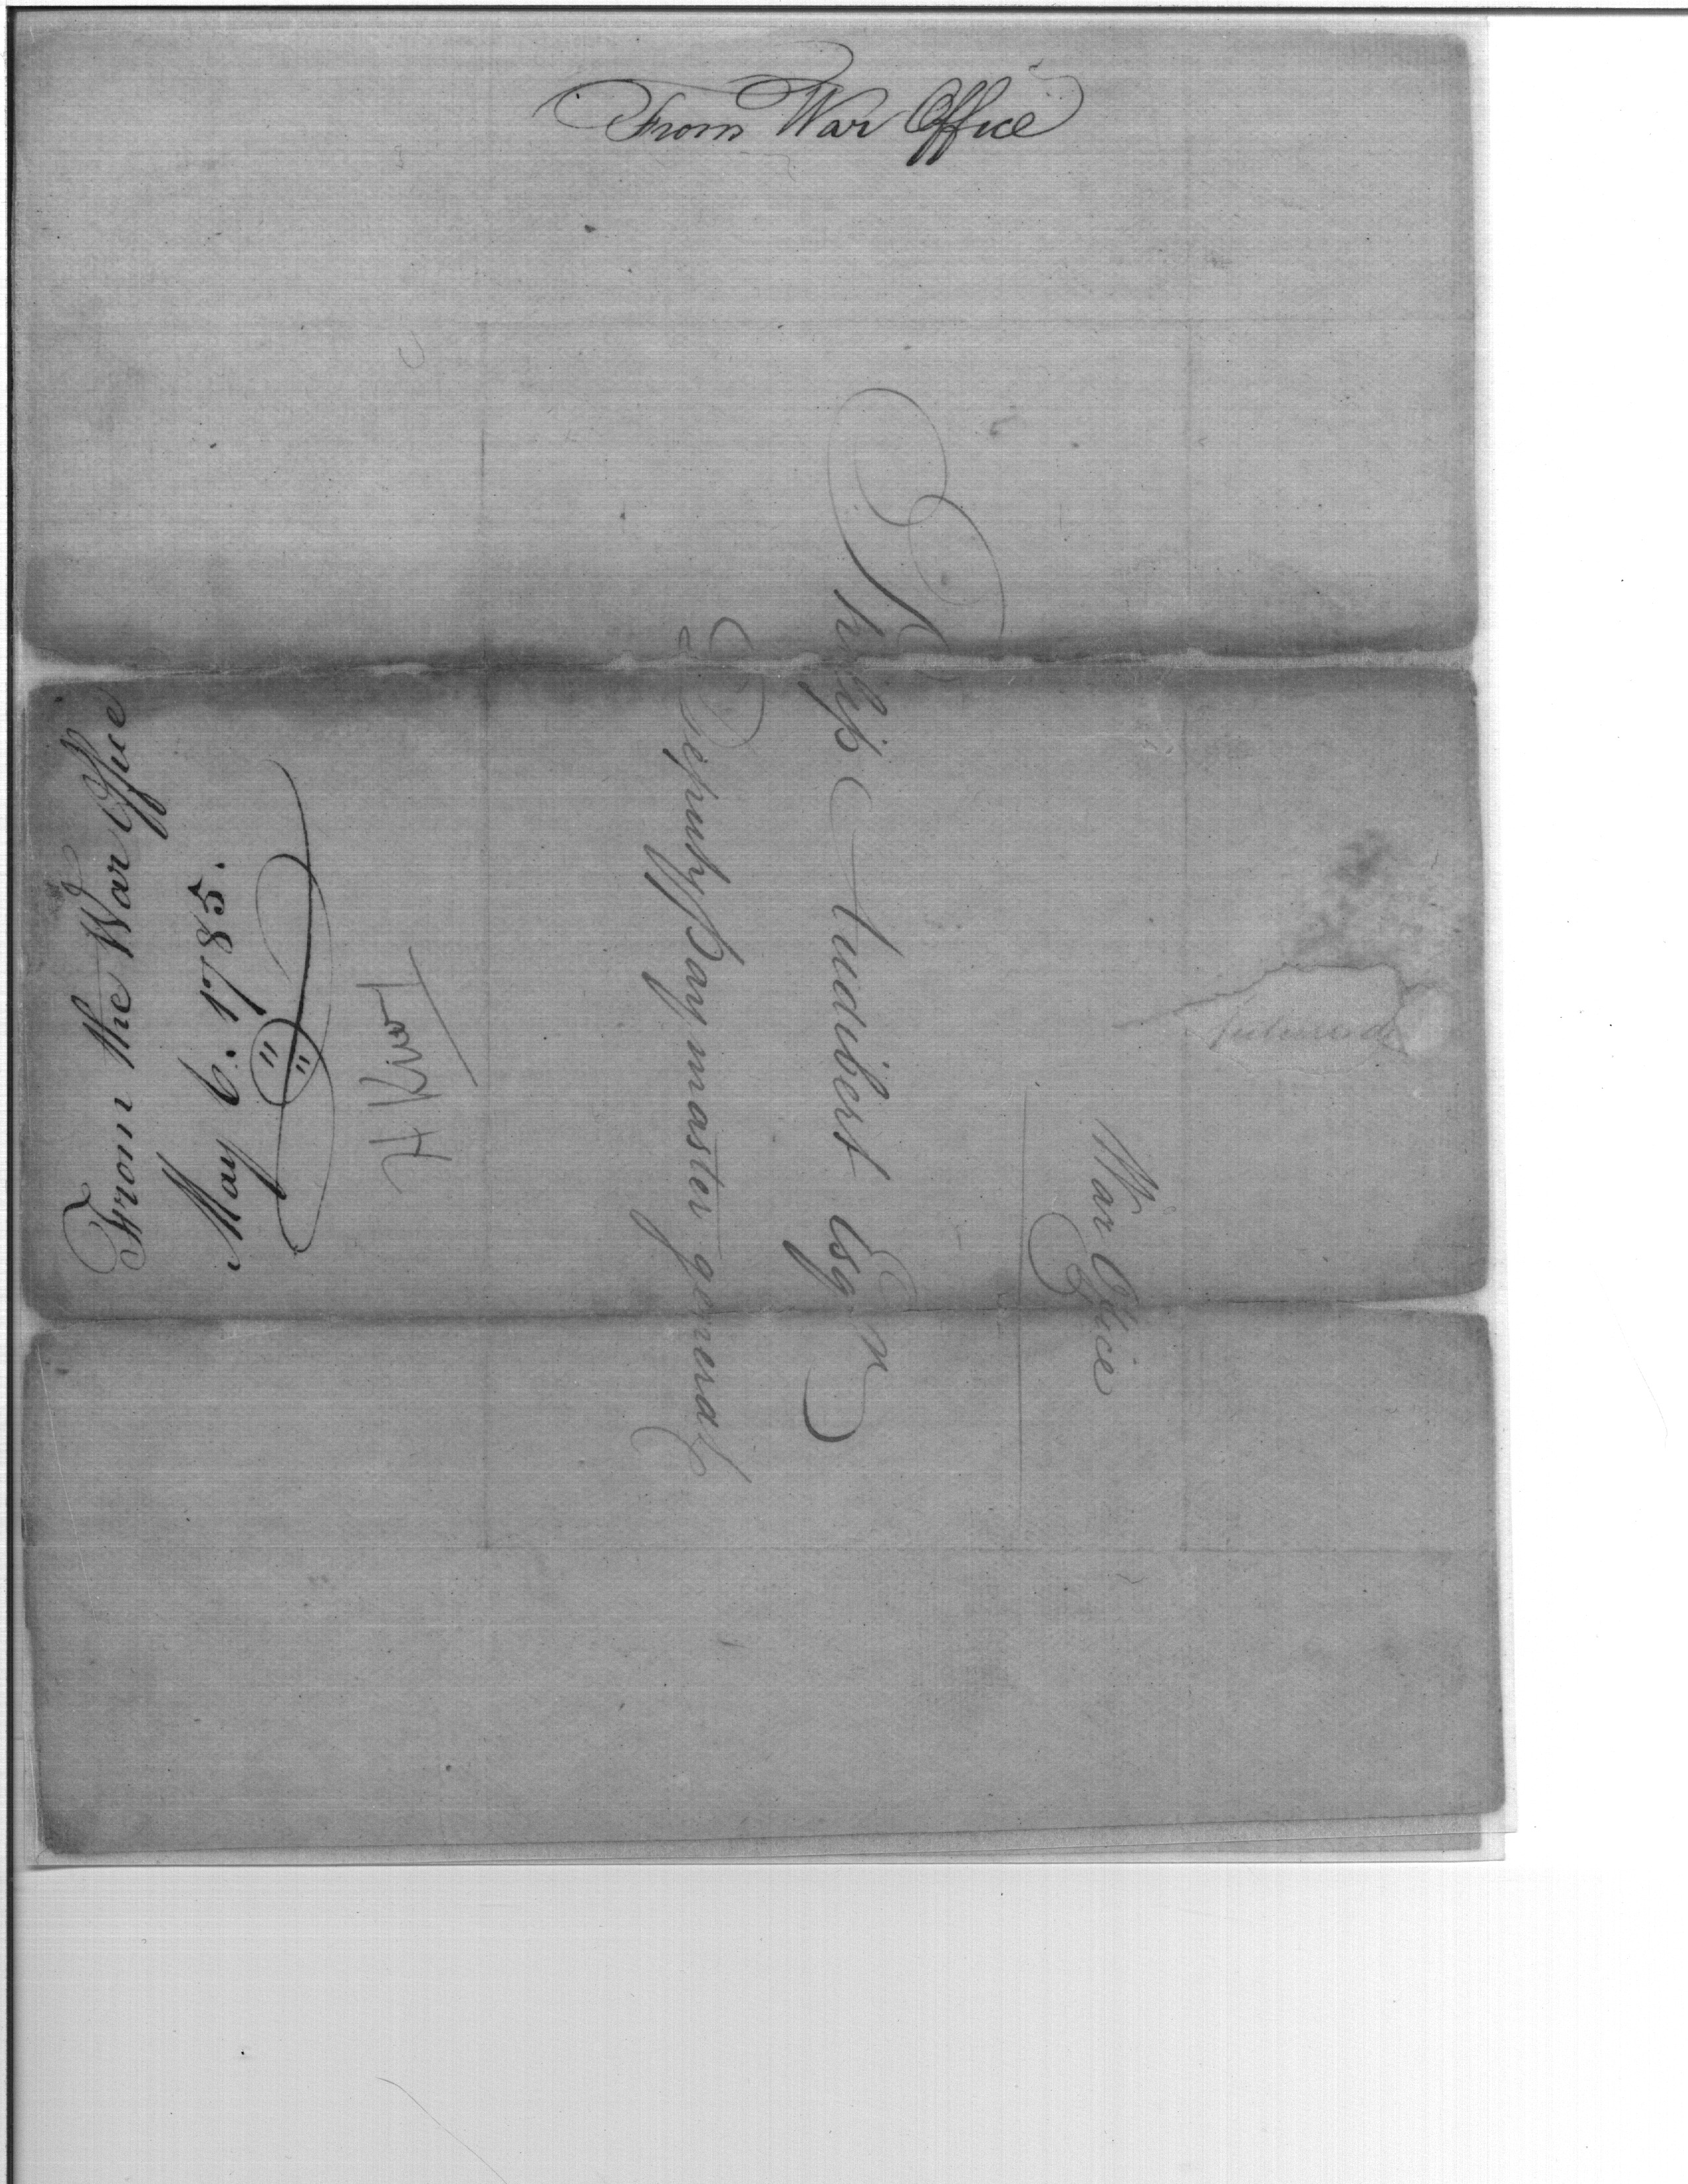 From War Office
War Office
Philip Audibert Esqr
Deputy Paymaster general
From the War Office
May 6. 1785.